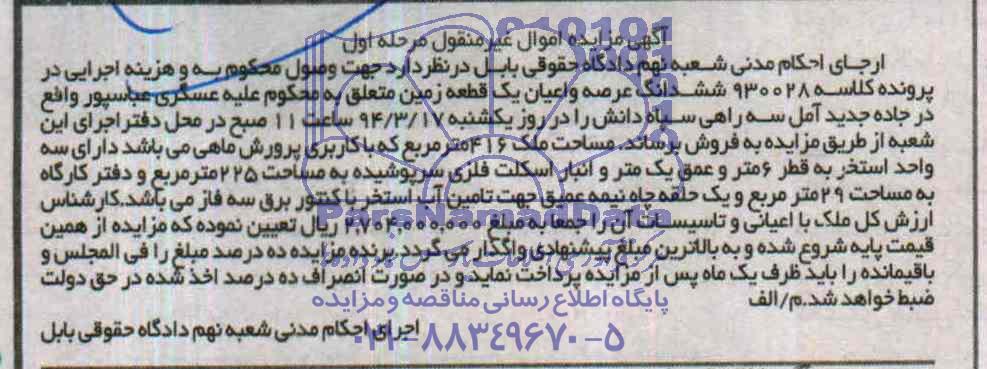 آگهی مزایده اموال غیرمنقول مرحله اول
ارجای احکام مدنی شعبه نهم دادگاه حقوقی بابل در نظر دارد جهت وصول محکوم به و هزینه اجرایی در
پرونده کلاسه ۹۳۰۰۲۸ ششدانگ عرصه واعیان یک قطعه زمین متعلق به محکوم علیه عسگری عباسپور واقع
در جاده جدید آمل سه راهی سپاه دانش را در روز یکشنبه ۹۴/۳/۱۷ ساعت ۱۱ صبح در محل دفتر اجرای این
شعبه از طریق مزایده به فروش برساند. مساحت ملک ۴۱۶متر مربع که با کاربری پرورش ماهی می باشد دارای سه
واحد استخر به قطر ۶متر و عمق یک متر و انبار اسکلت فلزی سرپوشیده به مساحت ۲۲۵مترمربع و دفتر کارگاه
به مساحت ۲۹متر مربع و یک حلقه چاه نیمه عمیق جهت تامین آب استخر با کنتور برق سه فاز می باشد.کارشناس
ارزش کل ملک با اعیانی و تاسیسات آن را جمعا به مبلغ ۲،۷۰۲،۰۰۰،۰۰۰ ریال تعیین نموده که مزایده از همین
قیمت پایه شروع شده و به بالاترین مبلغ پیشنهادی واگذار می گردد. برنده مزایده ده درصد مبلغ را فی المجلس و
باقیمانده را باید ظرف یک ماه پس از مزایده پرداخت نماید.و در صورت انصراف ده درصد اخذ شده در حق دولت
ضبط خواهد شد.م/الف
اجرای احکام مدنی شعبه نهم دادگاه حقوقی بابل
ParsNamadData
پایگاه اطلاع رسانی مناقصه و مزایده
۰۲۱-۸۸۳۴۹۶۷۰-۵